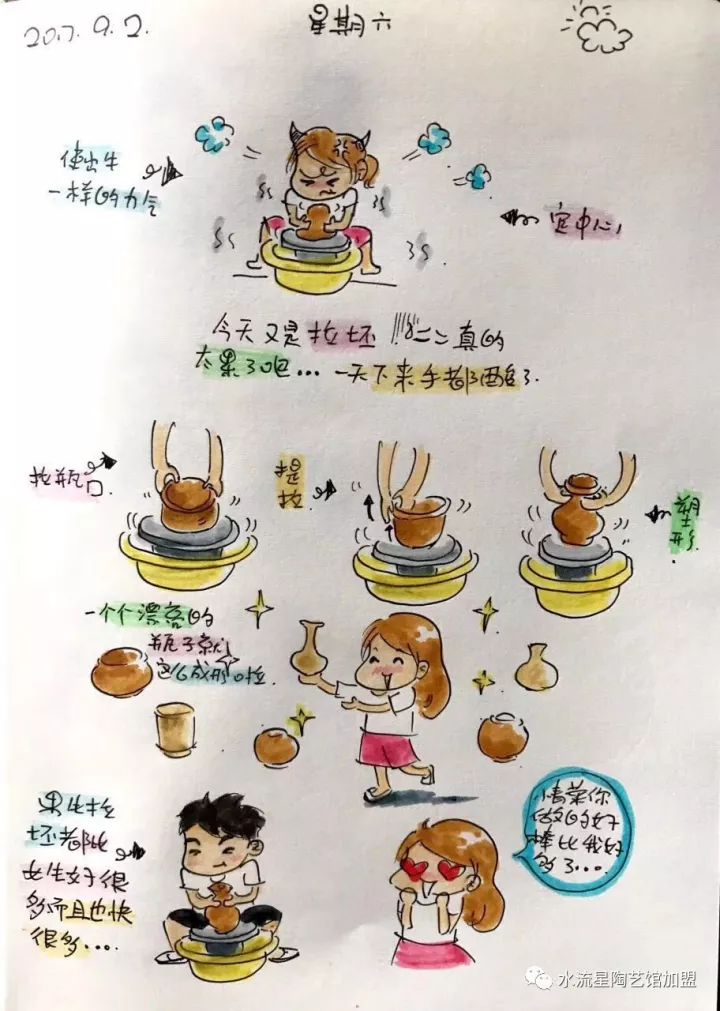 2017.9.2.
星期六
使出牛
一样的力气
定中心,
今天又是拉坯!!!二二真的
太累了吧...一天下来手都酸了.
拉瓶口
提拉
塑形
一个个漂亮的
瓶子就
这么成形啦
男生拉
坯都比
女生好很
多而且也快
很多....
你
做的好
棒比我好
多了....
水流星陶艺馆加盟